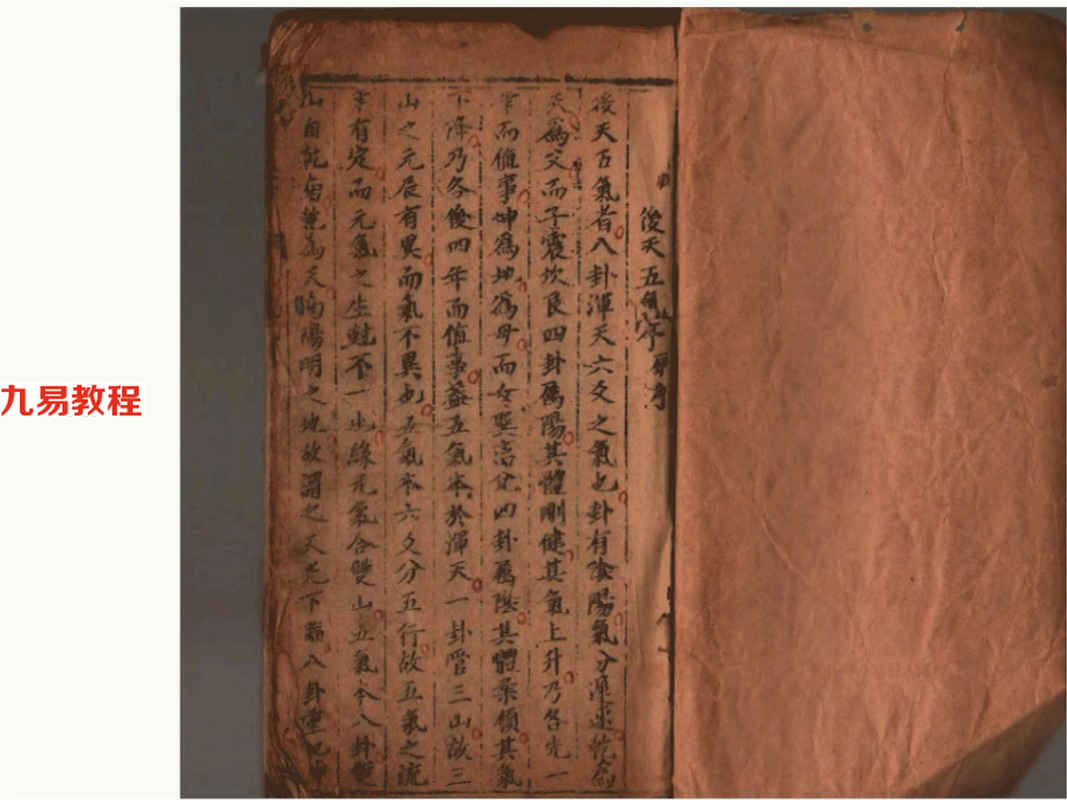 後天五氣序
後天五氣者八卦渾天六爻之氣也卦有陰陽氣分運乾為
天為父而子震坎艮四卦屬陽其體剛健其氣上升乃各先一
年而值事坤為地為母而女巽離兌四卦屬陰其體柔順其氣
下降乃各後四年而值事蓋五氣本於渾天一卦管三山故三
山之元辰有異而氣不異也五氣本六爻分五行故五氣之流
有定而元氣之生不一也緣元氣合雙山五氣本八卦
山自乾為天向陽明之地故謂之天元下八卦
九易教程